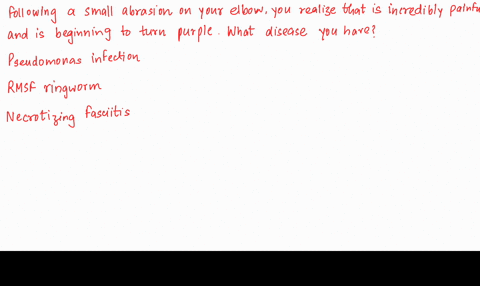 Following a small abrasion on your elbow, you realize that is incredibly painfu
and is beginning to turn purple. What disease you have?
Pseudomonas infection
RMSF ringworm
Necrotizing fasciitis